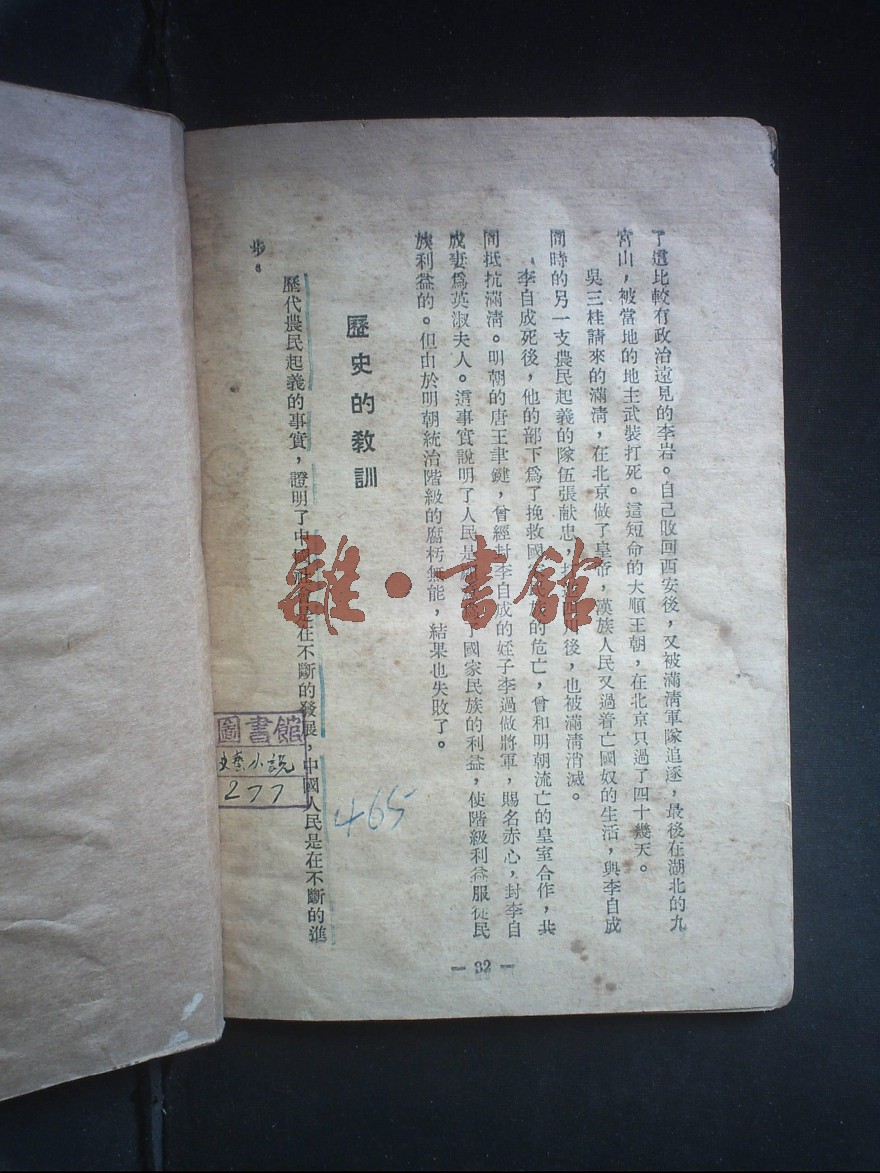 了這比較有政治遠見的李岩。自己敗回西安後，又被滿清軍隊追逐，最後在湖北的九
宮山，被當地的地主武裝打死。這短命的大順王朝，在北京只過了四十幾天。
吳三桂請來的滿清，在北京做了皇帝，漢族人民又過着亡國奴的生活，與李自成
同時的另一支農民起義的隊伍張献忠，後，也被滿清消滅。
李自成死後，他的部下爲了挽救國的危亡，曾和明朝流亡的皇室合作，共
同抵抗滿清。明朝的唐王聿鍵，曾經封李自成的姪子李過做將軍，賜名赤心，封李自
成妻爲英淑夫人。這事實說明了人民是國家民族的利益，使階級利益服從民
族利益的。但由於明朝統治階級的腐朽無能，結果也失敗了。
歷史的教訓
歷代農民起義的事實，證明了中是在不斷的發展，中國人民是在不斷的進
步。
— 32 —
雜·書館
圖書館
文藝小說
277
465